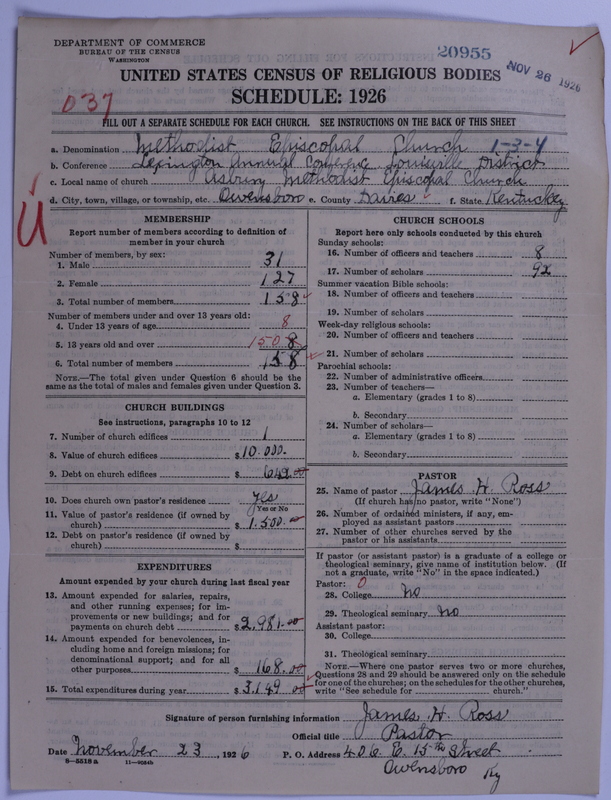 DEPARTMENT OF COMMERCE
BUREAU OF THE CENSUS
WASHINGTON
20955
NOV 26 1926
UNITED STATES CENSUS OF RELIGIOUS BODIES
SCHEDULE: 1926
037
FILL OUT A SEPARATE SCHEDULE FOR EACH CHURCH. SEE INSTRUCTIONS ON THE BACK OF THIS SHEET
a. Denomination Methodist Episcopal Church 1-3-4
b. Conference Lexington Annual Conference Louisville District
c. Local name of church Asbury Methodist Episcopal Church
d. City, town, village, or township, etc. Owensboro e. County Daviess f. State Kentuckey
MEMBERSHIP
Report number of members according to definition of
member in your church
Number of members, by sex:
1. Male 31
2. Female 127
3. Total number of members 158
Number of members under and over 13 years old:
4. Under 13 years of age 8
5. 13 years old and over 150 8
6. Total number of members 158
NOTE.—The total given under Question 6 should be the
same as the total of males and females given under Question 3.
CHURCH BUILDINGS
See instructions, paragraphs 10 to 12
7. Number of church edifices 1
8. Value of church edifices $10.000.
9. Debt on church edifices $649.00
10. Does church own pastor's residence yes
Yes or No
11. Value of pastor's residence (if owned by
church) $1.500.00
12. Debt on pastor's residence (if owned by
church) $
EXPENDITURES
Amount expended by your church during last fiscal year
13. Amount expended for salaries, repairs,
and other running expenses; for im-
provements or new buildings; and for
payments on church debt $2,981.00
14. Amount expended for benevolences, in-
cluding home and foreign missions; for
denominational support; and for all
other purposes $168.00
15. Total expenditures during year $3,149.00
CHURCH SCHOOLS
Report here only schools conducted by this church
Sunday schools:
16. Number of officers and teachers 8
17. Number of scholars 92
Summer vacation Bible schools:
18. Number of officers and teachers
19. Number of scholars
Week-day religious schools:
20. Number of officers and teachers
21. Number of scholars
Parochial schools:
22. Number of administrative officers
23. Number of teachers—
a. Elementary (grades 1 to 8)
b. Secondary
24. Number of scholars—
a. Elementary (grades 1 to 8)
b. Secondary
PASTOR
25. Name of pastor James H. Ross
(If church has no pastor, write "None")
26. Number of ordained ministers, if any, em-
ployed as assistant pastors
27. Number of other churches served by the
pastor or his assistants
If pastor (or assistant pastor) is a graduate of a college or
theological seminary, give name of institution below. (If
not a graduate, write "No" in the space indicated.)
Pastor: 0
28. College No
29. Theological seminary No
Assistant pastor:
30. College
31. Theological seminary
NOTE.—Where one pastor serves two or more churches,
Questions 28 and 29 should be answered only on the schedule
for one of the churches; on the schedules for the other churches,
write "See schedule for church."
Signature of person furnishing information James H. Ross
Official title Pastor
Date November 23, 1926 P. O. Address 406 E. 15th Street
8-5518a 11-9034b
Owensboro Ky